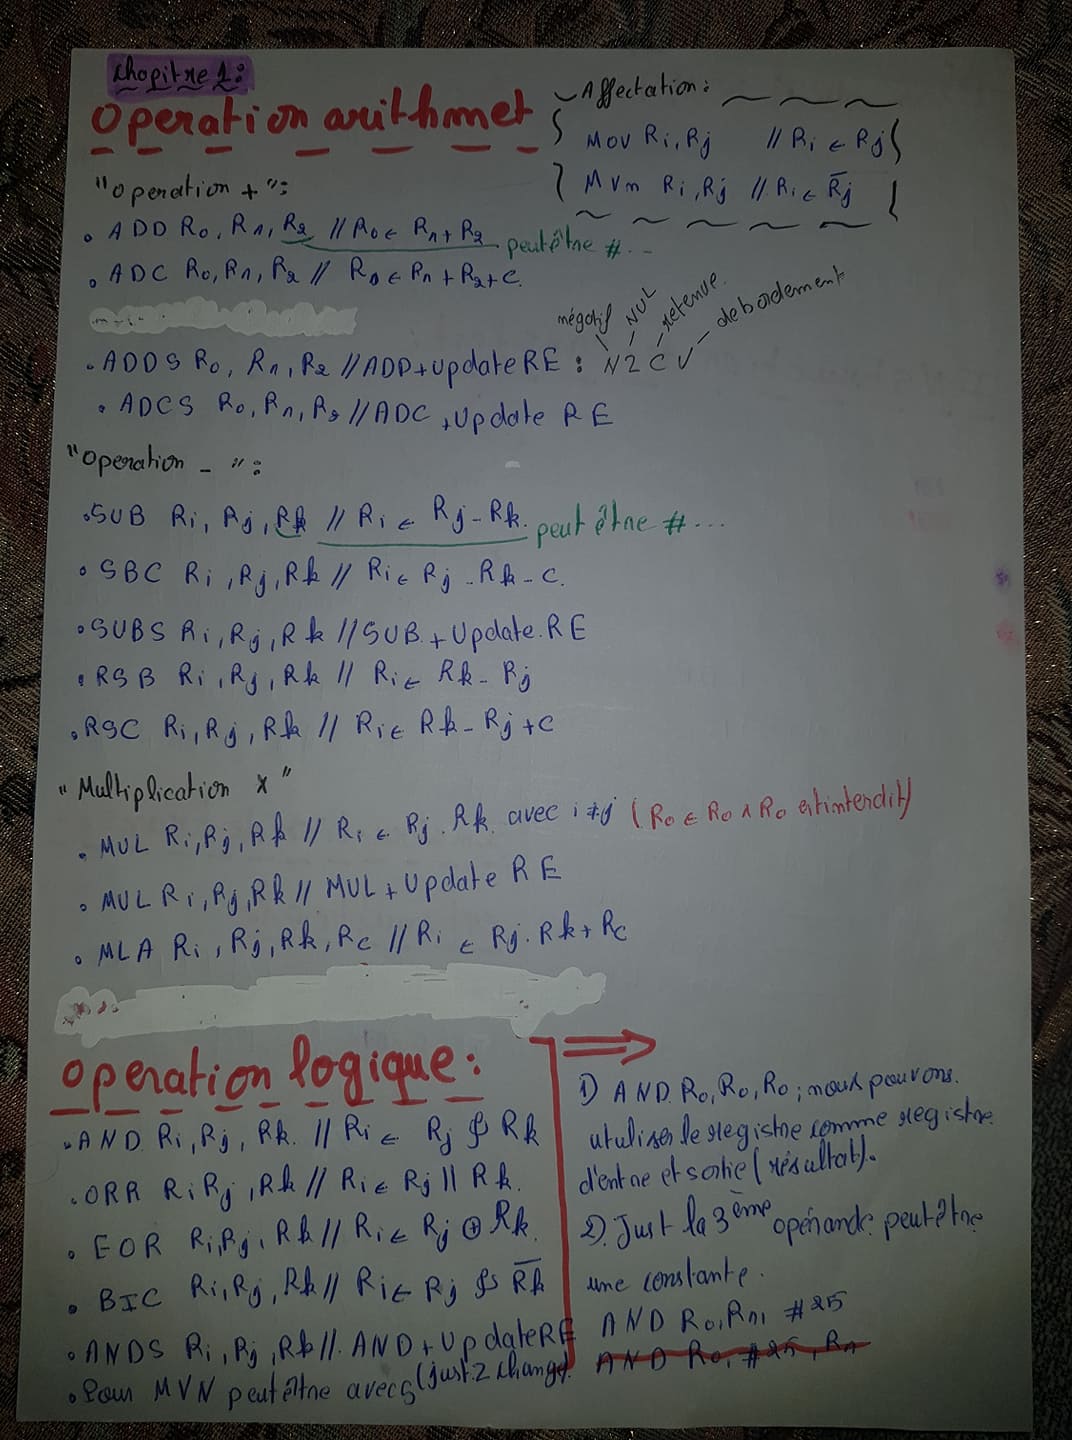 Chapitre 1:
Operation arithmet
Affectation:
Mov Ri, Rj // Ri ← Rj
MVn Ri, Rj // Ri ← R̅j̅
"Operation +":
• ADD R0, R1, R2 // R0 ← R1 + R2 peut être #...
• ADC R0, R1, R2 // R0 ← R1 + R2 + c.
négatif NUL retenue. debordement
• ADDS R0, R1, R2 // ADD + update RE : N Z C V
• ADCS R0, R1, R2 // ADC + Update RE
"Operation - ":
• SUB Ri, Rj, Rk // Ri ← Rj - Rk. peut être #...
• SBC Ri, Rj, Rk // Ri ← Rj - Rk - c.
• SUBS Ri, Rj, Rk // SUB + Update RE
• RSB Ri, Rj, Rk // Ri ← Rk - Rj
• RSC Ri, Rj, Rk // Ri ← Rk - Rj + c
"Multiplication x"
• MUL Ri, Rj, Rk // Ri ← Rj . Rk avec i ≠ j (R0 ← R0 ∧ R0 est interdit)
• MUL Ri, Rj, Rk // MUL + Update RE
• MLA Ri, Rj, Rk, Rc // Ri ← Rj . Rk + Rc
Operation logique:
• AND Ri, Rj, Rk. // Ri ← Rj & Rk
• ORR Ri Rj, Rk // Ri ← Rj || Rk.
• EOR Ri, Rj, Rk // Ri ← Rj ⊕ Rk.
• BIC Ri, Rj, Rk // Ri ← Rj & R̅k̅
• ANDS Ri, Rj, Rk // AND + Update RE
• Pour MVN peut être avec S (just Z change).
1) AND R0, R0, R0; nous pouvons.
utuliser le registre comme registre
d'entre et sortie (résultat).
2) Just la 3ème opérande peut être
une constante.
AND R0, R1, #25
AND R0, #25, R1